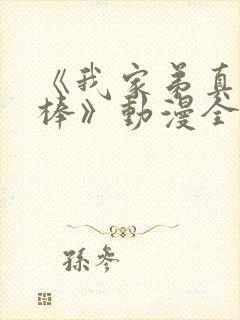 《我家弟真
棒》動漫全
孫參